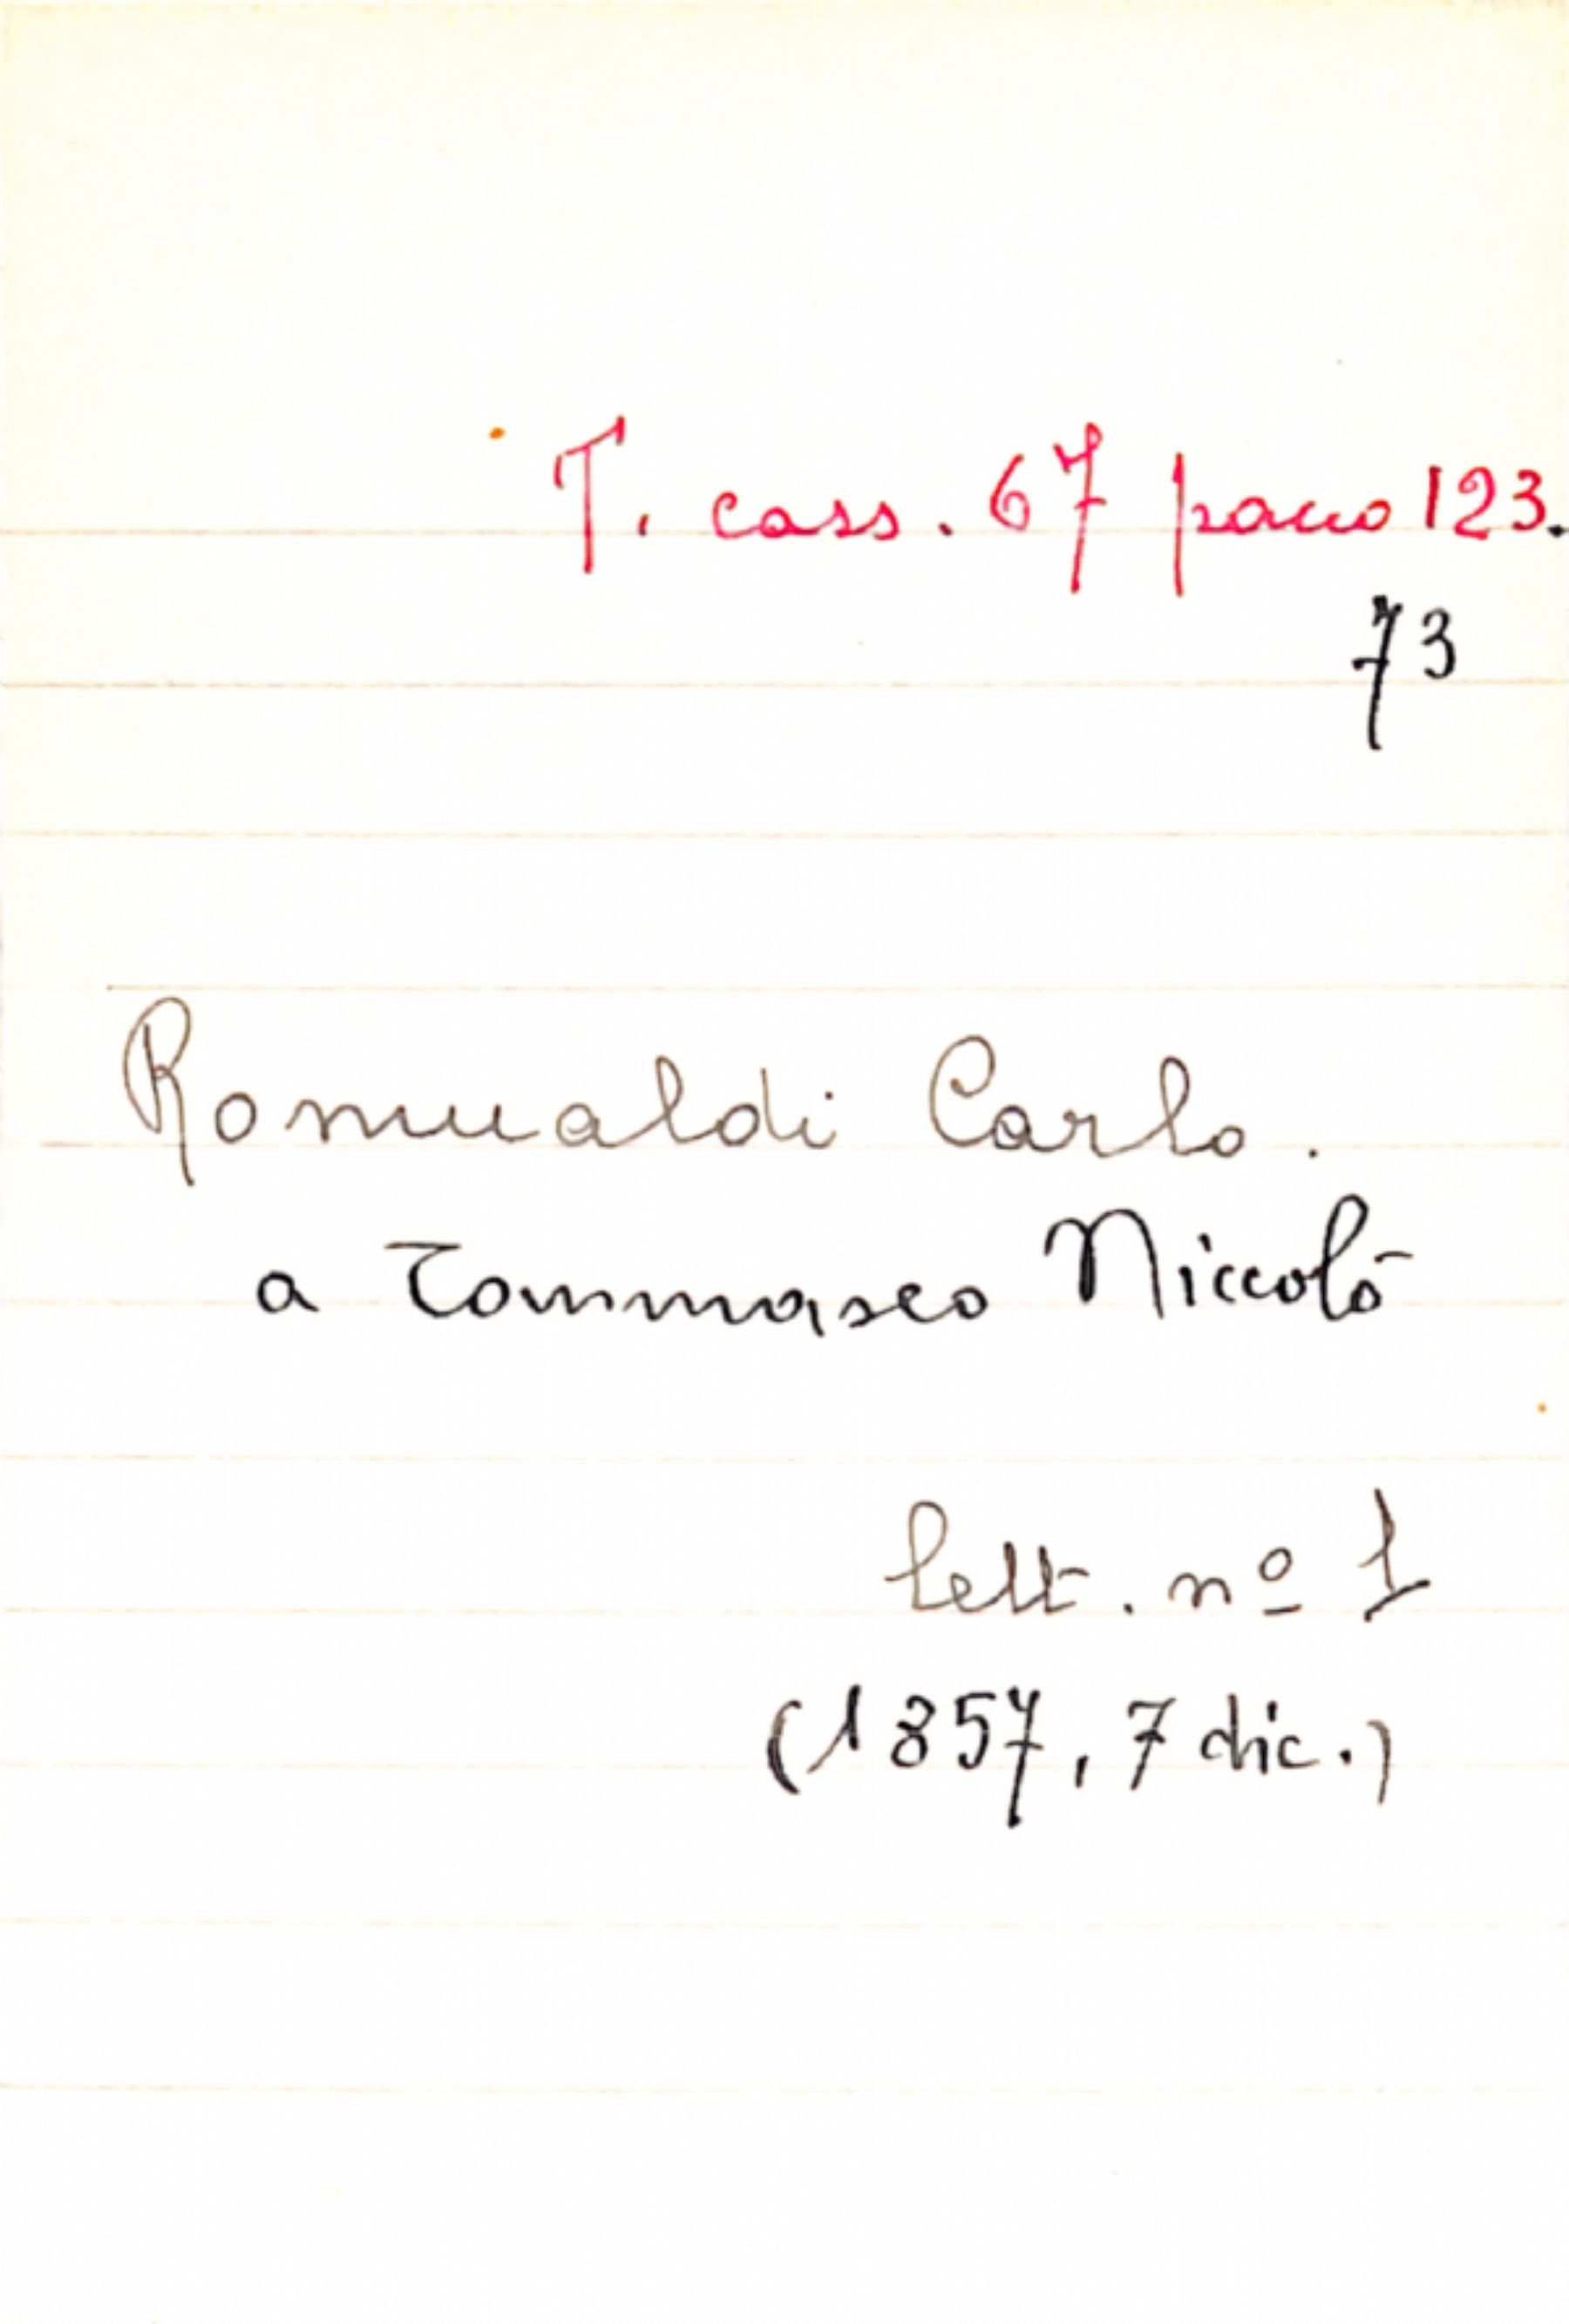 T. cass. 67 pacco 123.
73
Romualdi Carlo.
a Tommaseo Niccolò
lett. nº 1
(1857, 7 dic.)